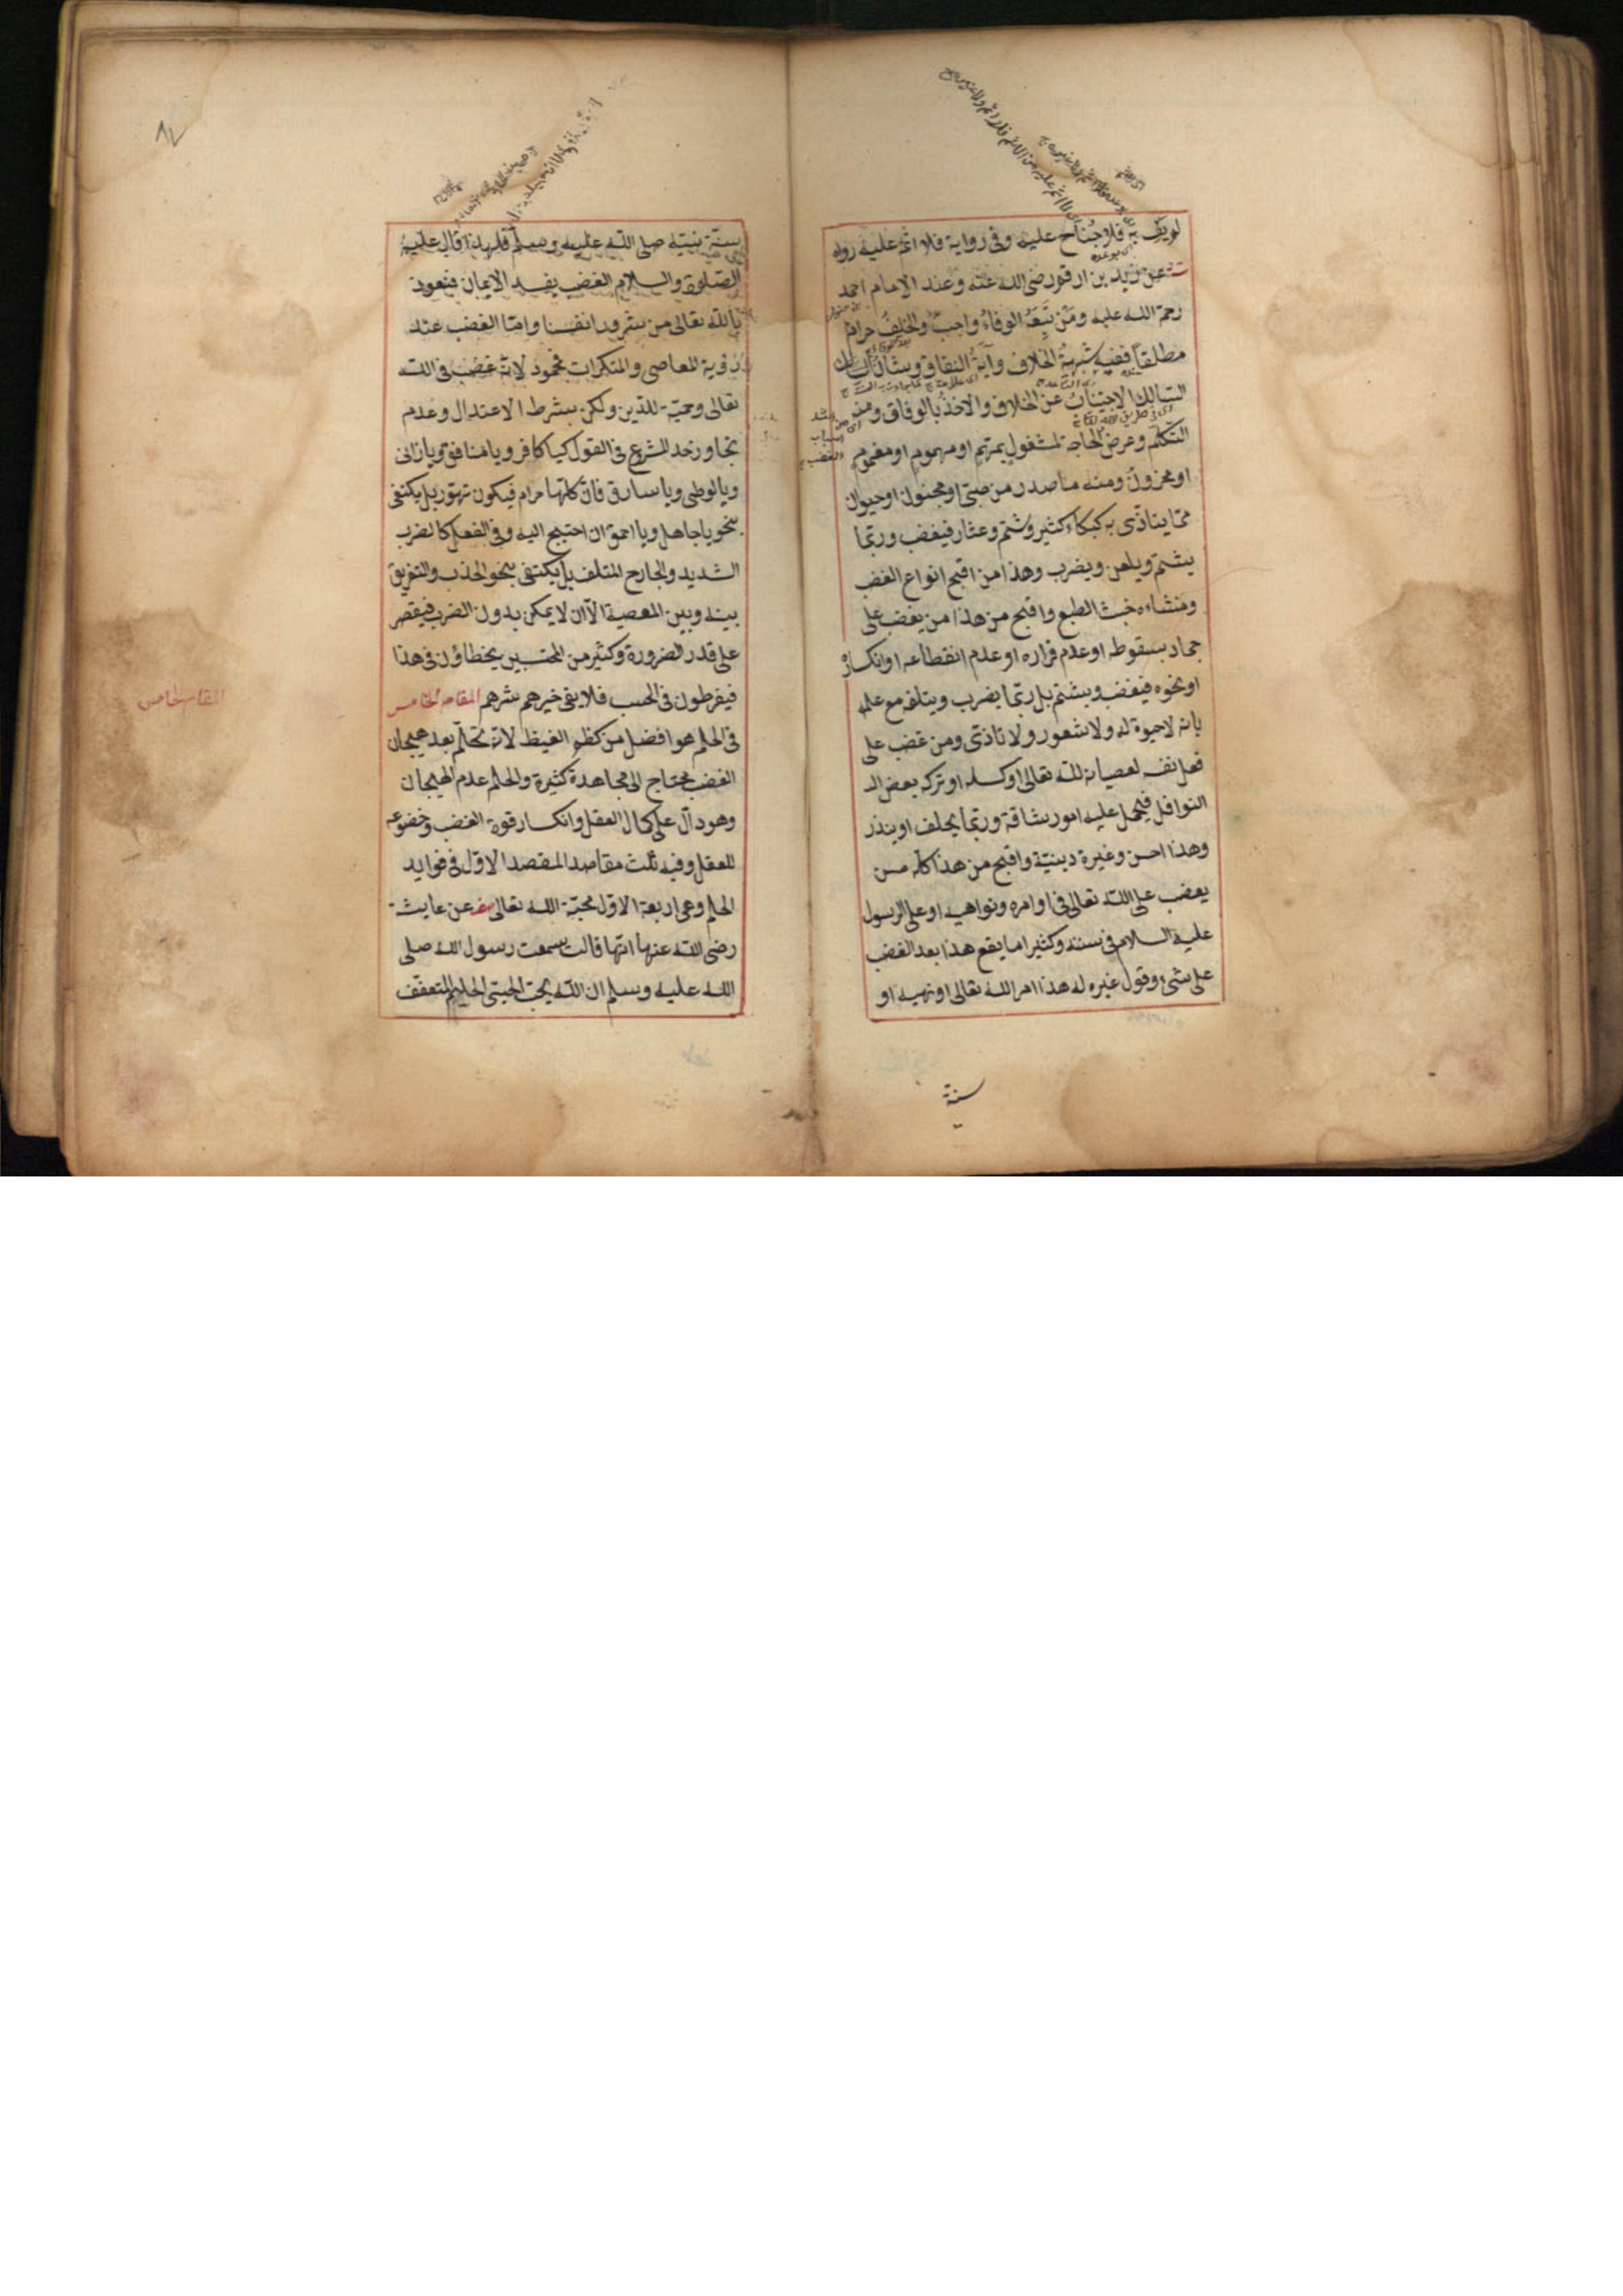 لم يف به فلا جناح عليه وفى رواية فلا اثم عليه رواه
ت عن زيد بن ارقم رضى الله عنه وعند الامام احمد
رحمة الله عليه ومن تبعه الوفاء واجب والخلف حرام
مطلقا ففيه شبهة الخلاف وآية النفاق وشأن
السالك الاجتناب عن الخلاف والاخذ بالوفاق ومنه
التكلم وعرض الحاجة لمشغول بمهم او مهموم او مغموم
او محزون ومنه ما صدر من صبى او مجنون او حيوان
مما يتاذى به كبكاء كثير وشتم وعثار فيغضب وربما
يشتم ويلعن ويضرب وهذا من اقبح انواع الغضب
ومنشاءه خبث الطبع واقبح من هذا من يغضب على
جماد بسقوطه او عدم قراره او عدم انقطاعه او انكساره
او نحوه فيغضب ويشتم بل ربما يضرب ويتلفه مع علمه
بانه لا حيوة له ولا شعور ولا تاذى ومن غضب على
فعل نفسه لعصيانه لله تعالى او كسله او تركه بعض الـ
النوافل فيحمل عليه امور شاقة وربما يحلف او ينذر
وهذا احسن وغيرة دينية واقبح من هذا كله من
يغضب على الله تعالى فى اوامره ونواهيه او على الرسول
عليه السلام فى سنته وكثيرا ما يقع هذا بعد الغضب
على شئ وقول غيره له هذا امر الله تعالى او نهيه او
سنة
٨٧
سنة نبيه صلى الله عليه وسلم فلهذا قال عليه
الصلوة والسلام الغضب يفسد الايمان فنعوذ
بالله تعالى من شرور انفسنا واما الغضب عند
رؤية المعاصى والمنكرات فمحمود لانه غضب فى الله
تعالى وحمية للدين ولكن بشرط الاعتدال وعدم
تجاوز حد الشرع فى القول كيا كافر ويا منافق ويا زانى
ويا لوطى ويا سارق فان كلها حرام فيكون تهور بل يكتفى
بنحو يا جاهل ويا احمق ان احتيج اليه وفى الفعل كالضرب
الشديد والجارح المتلف بل يكتفى بنحو الجذب والتفريق
بينه وبين المعصية الا ان لا يمكن بدون الضرب فيقصر
على قدر الضرورة وكثير من المحتسبين يخطاؤن فى هذا
فيفرطون فى الحسب فلا يفى خيرهم شرهم المقام الخامس
المقام الخامس
فى الحلم هو افضل من كظم الغيظ لانه تحلم بعد هيجان
الغضب محتاج الى مجاهدة كثيرة والحلم عدم الهيجان
وهو دال على كمال العقل وانكسار قوة الغضب وخضوعه
للعقل وفيه ثلث مقاصد المقصد الاول فى فوايد
الحلم وهى اربعة الاول محبة الله تعالى عن عايشة
رضى الله عنها انها قالت سمعت رسول الله صلى
الله عليه وسلم ان الله يحب الحيى الحليم المتعفف